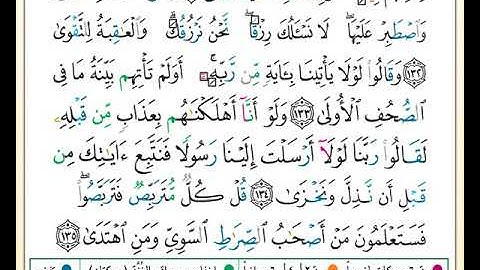 وَٱصۡطَبِرۡ عَلَيۡهَاۖ لَا نَسۡـَٔلُكَ رِزۡقٗاۖ نَّحۡنُ نَرۡزُقُكَۗ وَٱلۡعَٰقِبَةُ لِلتَّقۡوَىٰ
١٣٢ وَقَالُواْ لَوۡلَا يَأۡتِينَا بِـَٔايَةٖ مِّن رَّبِّهِۦٓۚ أَوَلَمۡ تَأۡتِهِم بَيِّنَةُ مَا فِي
ٱلصُّحُفِ ٱلۡأُولَىٰ ١٣٣ وَلَوۡ أَنَّآ أَهۡلَكۡنَٰهُم بِعَذَابٖ مِّن قَبۡلِهِۦ
لَقَالُواْ رَبَّنَا لَوۡلَآ أَرۡسَلۡتَ إِلَيۡنَا رَسُولٗا فَنَتَّبِعَ ءَايَٰتِكَ مِن
قَبۡلِ أَن نَّذِلَّ وَنَخۡزَىٰ ١٣٤ قُلۡ كُلّٞ مُّتَرَبِّصٞ فَتَرَبَّصُواْۖ
فَسَتَعۡلَمُونَ مَنۡ أَصۡحَٰبُ ٱلصِّرَٰطِ ٱلسَّوِيِّ وَمَنِ ٱهۡتَدَىٰ ١٣٥